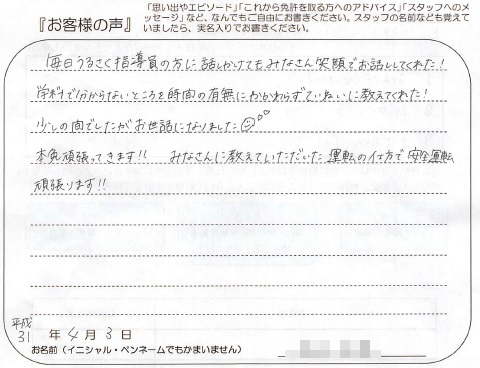 「思い出やエピソード」「これから免許を取る方へのアドバイス」「スタッフへのメ
ッセージ」など、なんでもご自由にお書きください。スタッフの名前なども覚えて
いましたら、実名入りでお書きください。
『お客様の声』
毎日うるさく指導員の方に話しかけてもみなさん笑顔でお話ししてくれた!
学科で分からないところを時間の有無にかかわらずていねいに教えてくれた!
少しの間でしたがお世話になりました
本免頑張ってきます!! みなさんに教えていただいた運転のイ士方で安全運転
頑張ります!!
平成
31 年 4 月 3 日
お名前(イニシャル・ペンネームでもかまいません)